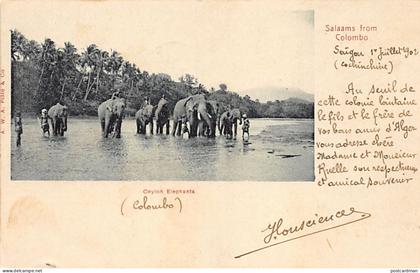 Salaams from
Colombo
Saïgon 1er Juillet 1902
(Cochinchine)
Au seuil de
cette colonie lointaine
le fils et le frère de
vos bons amis d'Alger
vous adresse chère
Madame et Monsieur
son respectueux
et amical souvenir
A. W. A. Plâté & Co
Ceylon Elephants
(Colombo)